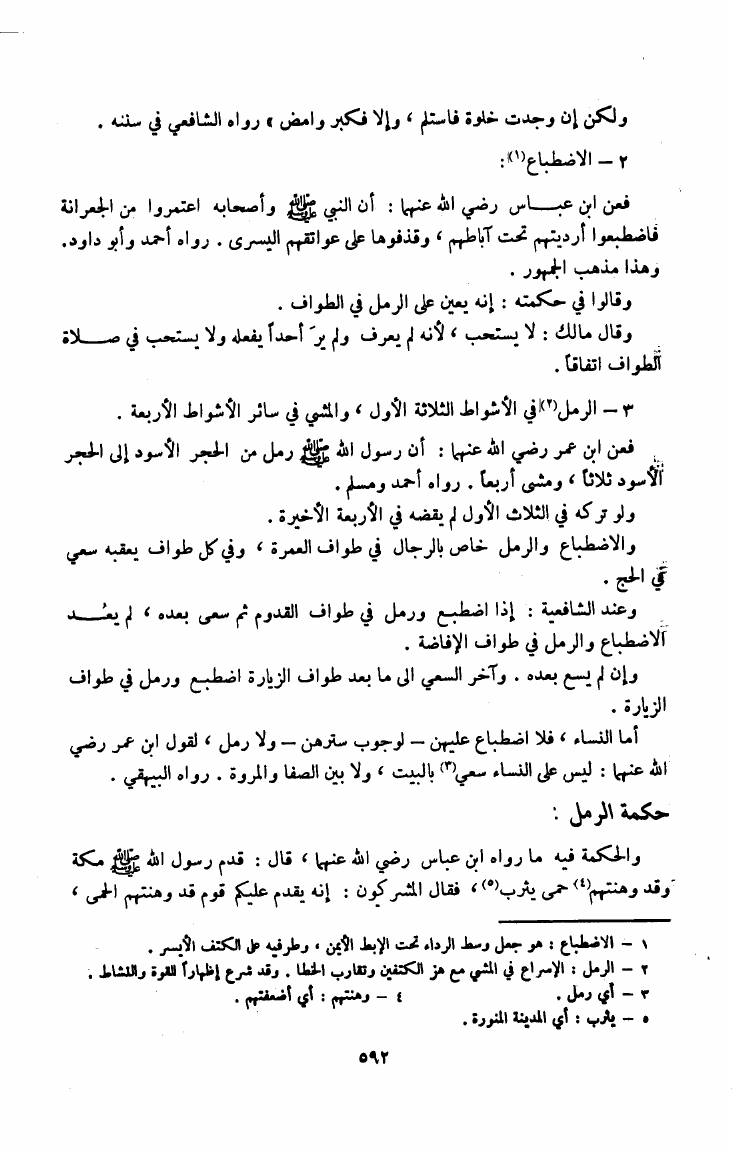 ولكن إن وجدت خلوة فاستلم ، وإلا فكبر وامض » رواه الشافعي في سننه .
٢ – الاضطباع(١):
فعن ابن عباس رضي الله عنهما : أن النبي ﷺ وأصحابه اعتمروا من الجعرانة
فاضطبعوا أرديتهم تحت آباطهم ، وقذفوها على عواتقهم اليسرى . رواه أحمد وأبو داود.
وهذا مذهب الجمهور .
وقالوا في حكمته : إنه يعين على الرمل في الطواف .
وقال مالك : لا يستحب ، لأنه لم يعرف ولم يرَ أحداً يفعله ولا يستحب في صلاة
الطواف اتفاقاً .
٣ – الرمل(٢) في الأشواط الثلاثة الأول ، والمشي في سائر الأشواط الأربعة .
فعن ابن عمر رضي الله عنهما : أن رسول الله ﷺ رمل من الحجر الأسود إلى الحجر
الأسود ثلاثاً ، ومشى أربعاً . رواه أحمد ومسلم .
ولو تركه في الثلاث الأول لم يقضه في الأربعة الأخيرة .
والاضطباع والرمل خاص بالرجال في طواف العمرة ، وفي كل طواف يعقبه سعي
في الحج .
وعند الشافعية : إذا اضطبع ورمل في طواف القدوم ثم سعى بعده ، لم يعُد
الاضطباع والرمل في طواف الإفاضة .
وإن لم يسع بعده . وآخر السعي الى ما بعد طواف الزيارة اضطبع ورمل في طواف
الزيارة .
أما النساء ، فلا اضطباع عليهن – لوجوب سترهن – ولا رمل ، لقول ابن عمر رضي
الله عنهما : ليس على النساء سعي(٣) بالبيت ، ولا بين الصفا والمروة . رواه البيهقي .
حكمة الرمل :
والحكمة فيه ما رواه ابن عباس رضي الله عنهما ، قال : قدم رسول الله ﷺ مكة
وقد وهنتهم(٤) حمى يثرب(٥) ، فقال المشركون : إنه يقدم عليكم قوم قد وهنتهم الحمى ،
١ – الاضطباع : هو جعل وسط الرداء تحت الإبط الأيمن ، وطرفيه على الكتف الأيسر .
٢ – الرمل : الإسراع في المشي مع هز الكتفين وتقارب الخطا . وقد شرع إظهاراً للقوة والنشاط .
٣ – أي رمل . ٤ – وهنتهم : أي أضعفتهم .
٥ – يثرب : أي المدينة المنورة .
٥٩٢